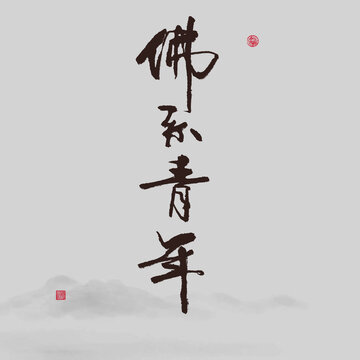 佛系青年